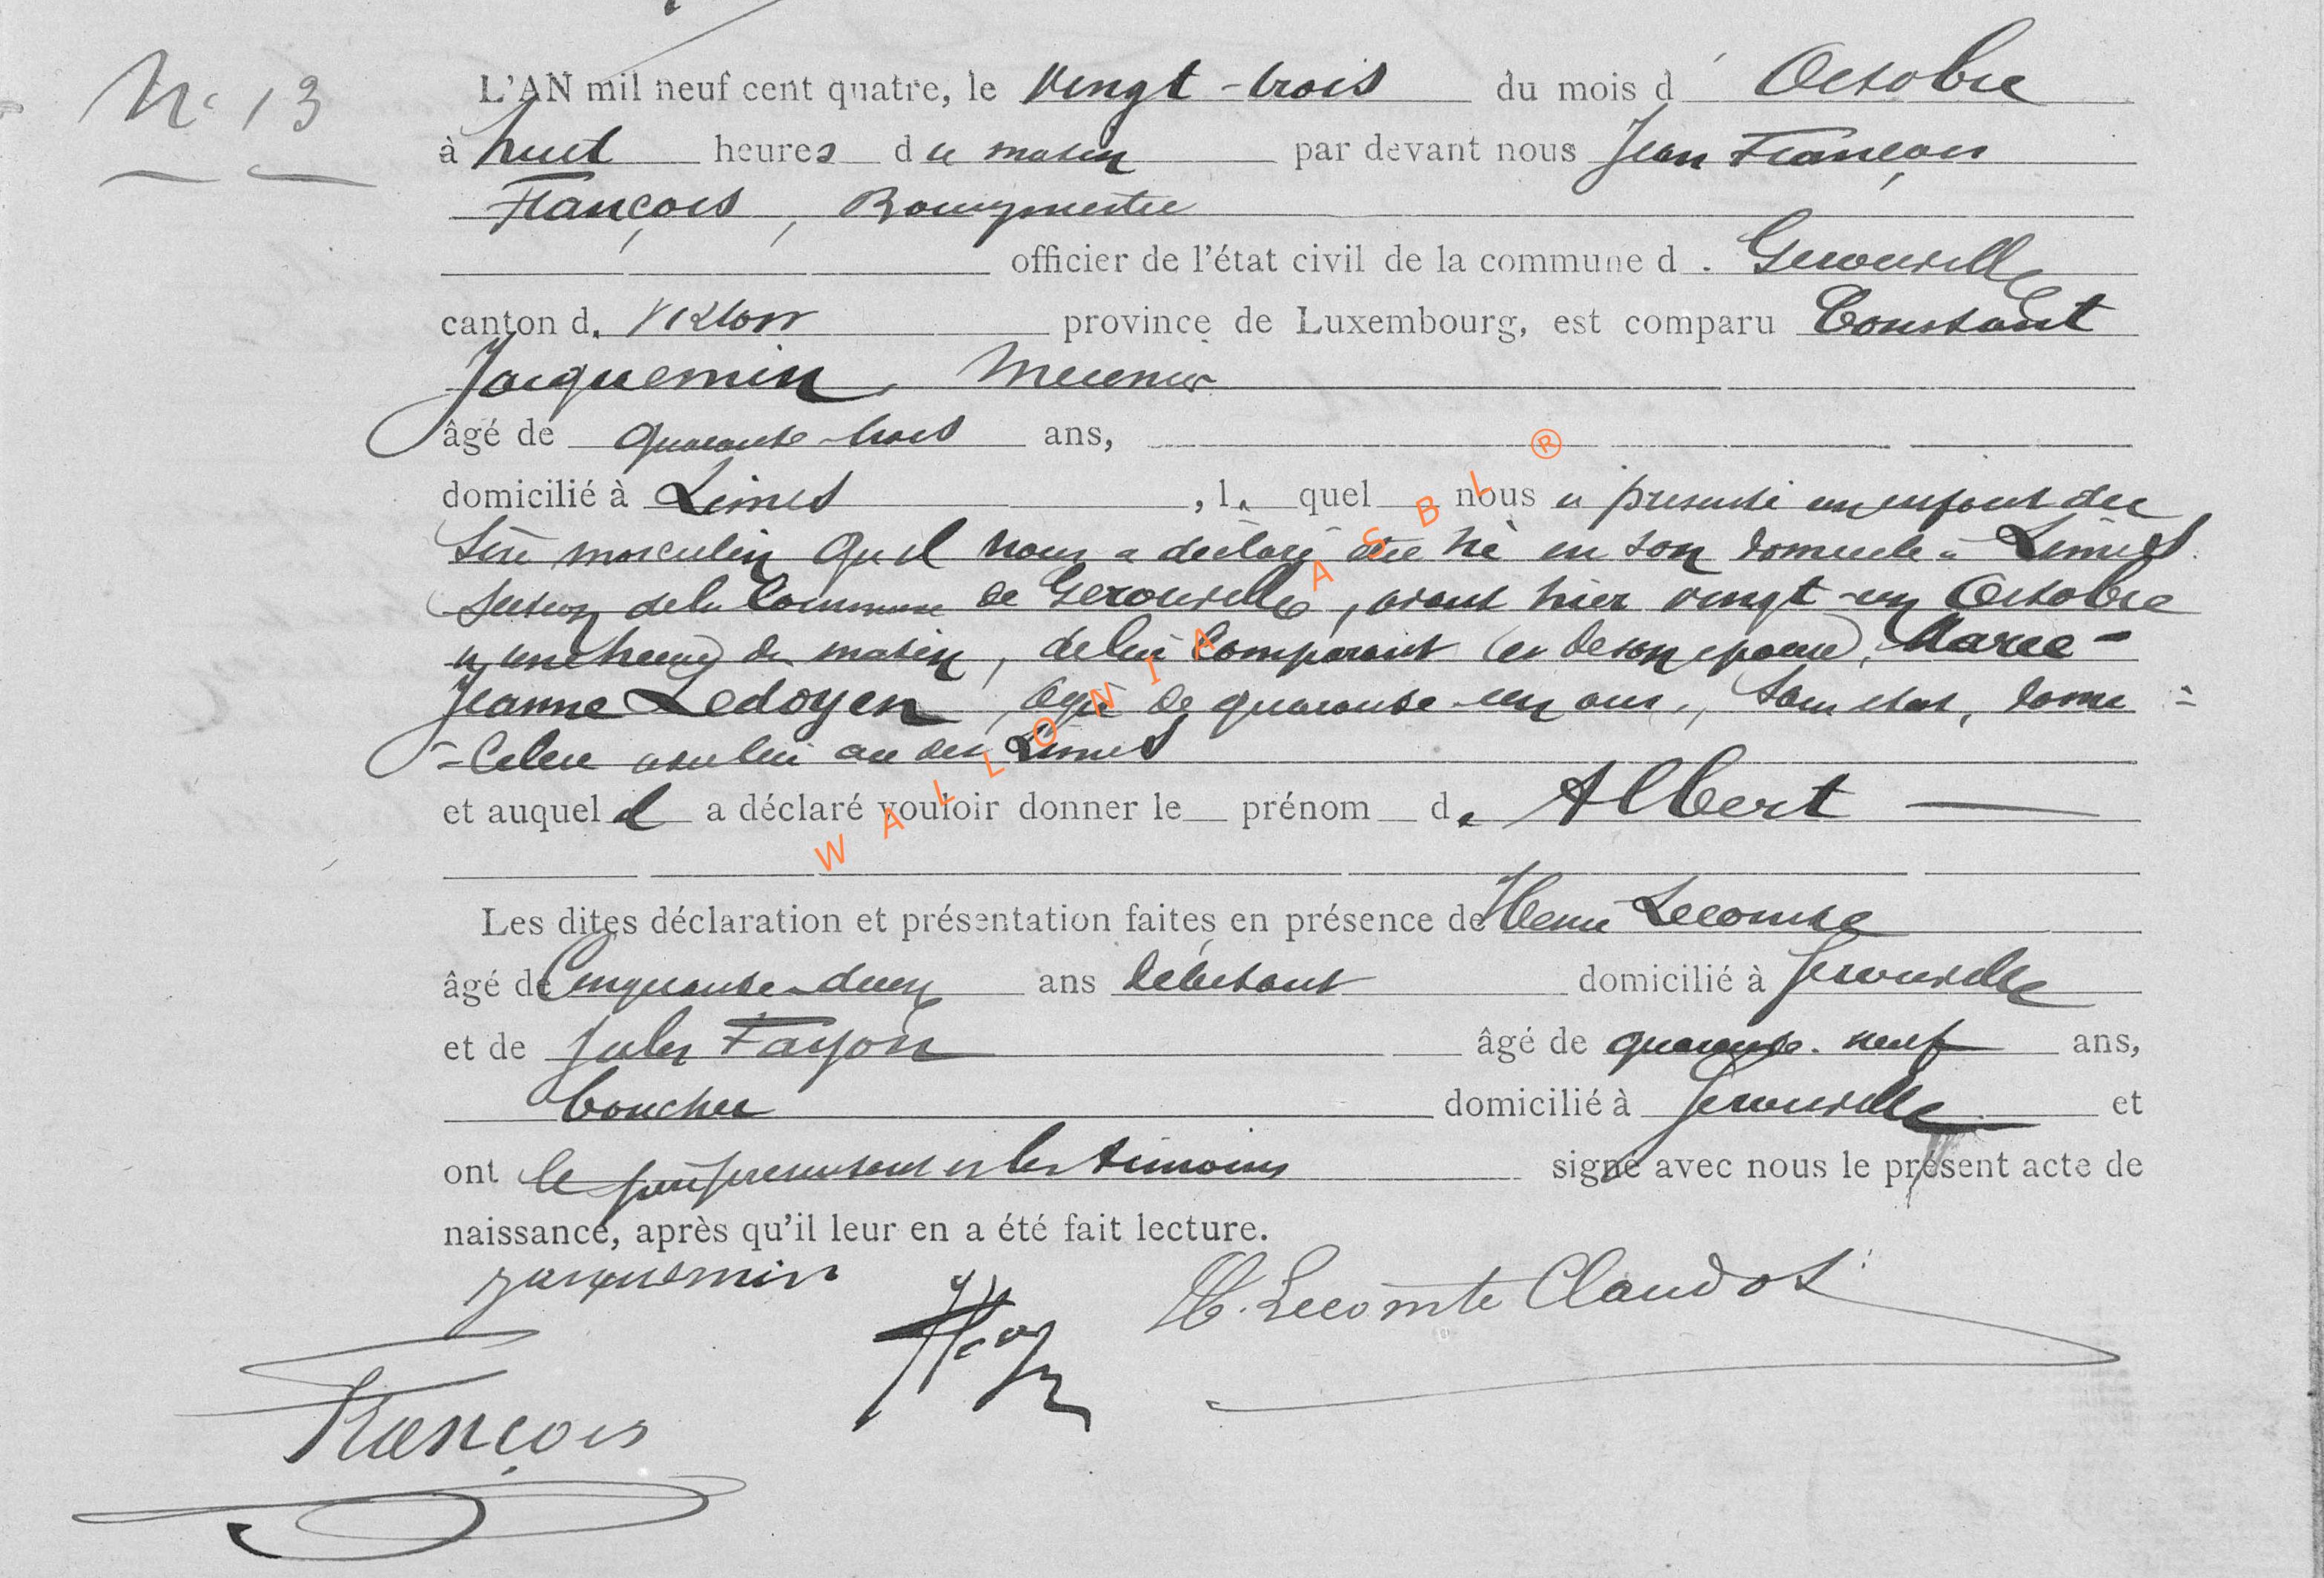 N° 13
L'AN mil neuf cent quatre, le vingt-trois du mois d'Octobre
à huit heures du matin par devant nous Jean François
François, Bourgmestre
officier de l'état civil de la commune de Gerouville
canton de Virton province de Luxembourg, est comparu Constant
Jacquemin, Meunier
âgé de quarante-trois ans,
domicilié à Limes, lequel nous a présenté un enfant du
sexe masculin qu'il nous a déclaré être né en son domicile à Limes
section de la Commune de Gerouville, avant hier vingt-un Octobre
à une heure du matin, de lui Comparant et de son épouse, Marie-
Jeanne Ledoyen, âgée de quarante-un ans, sans état, domi=
=ciliée avec lui au dit Limes
et auquel il a déclaré vouloir donner le prénom de Albert
Les dites déclaration et présentation faites en présence de Henri Lecomte
âgé de Cinquante-deux ans débitant domicilié à Gerouville
et de Jules Fayon âgé de quarante-neuf ans,
boucher domicilié à Gerouville et
ont le père présentant et les témoins signé avec nous le présent acte de
naissance, après qu'il leur en a été fait lecture.
Jacquemin
H. Lecomte Claudot
François
WALLONIA ASBL ®